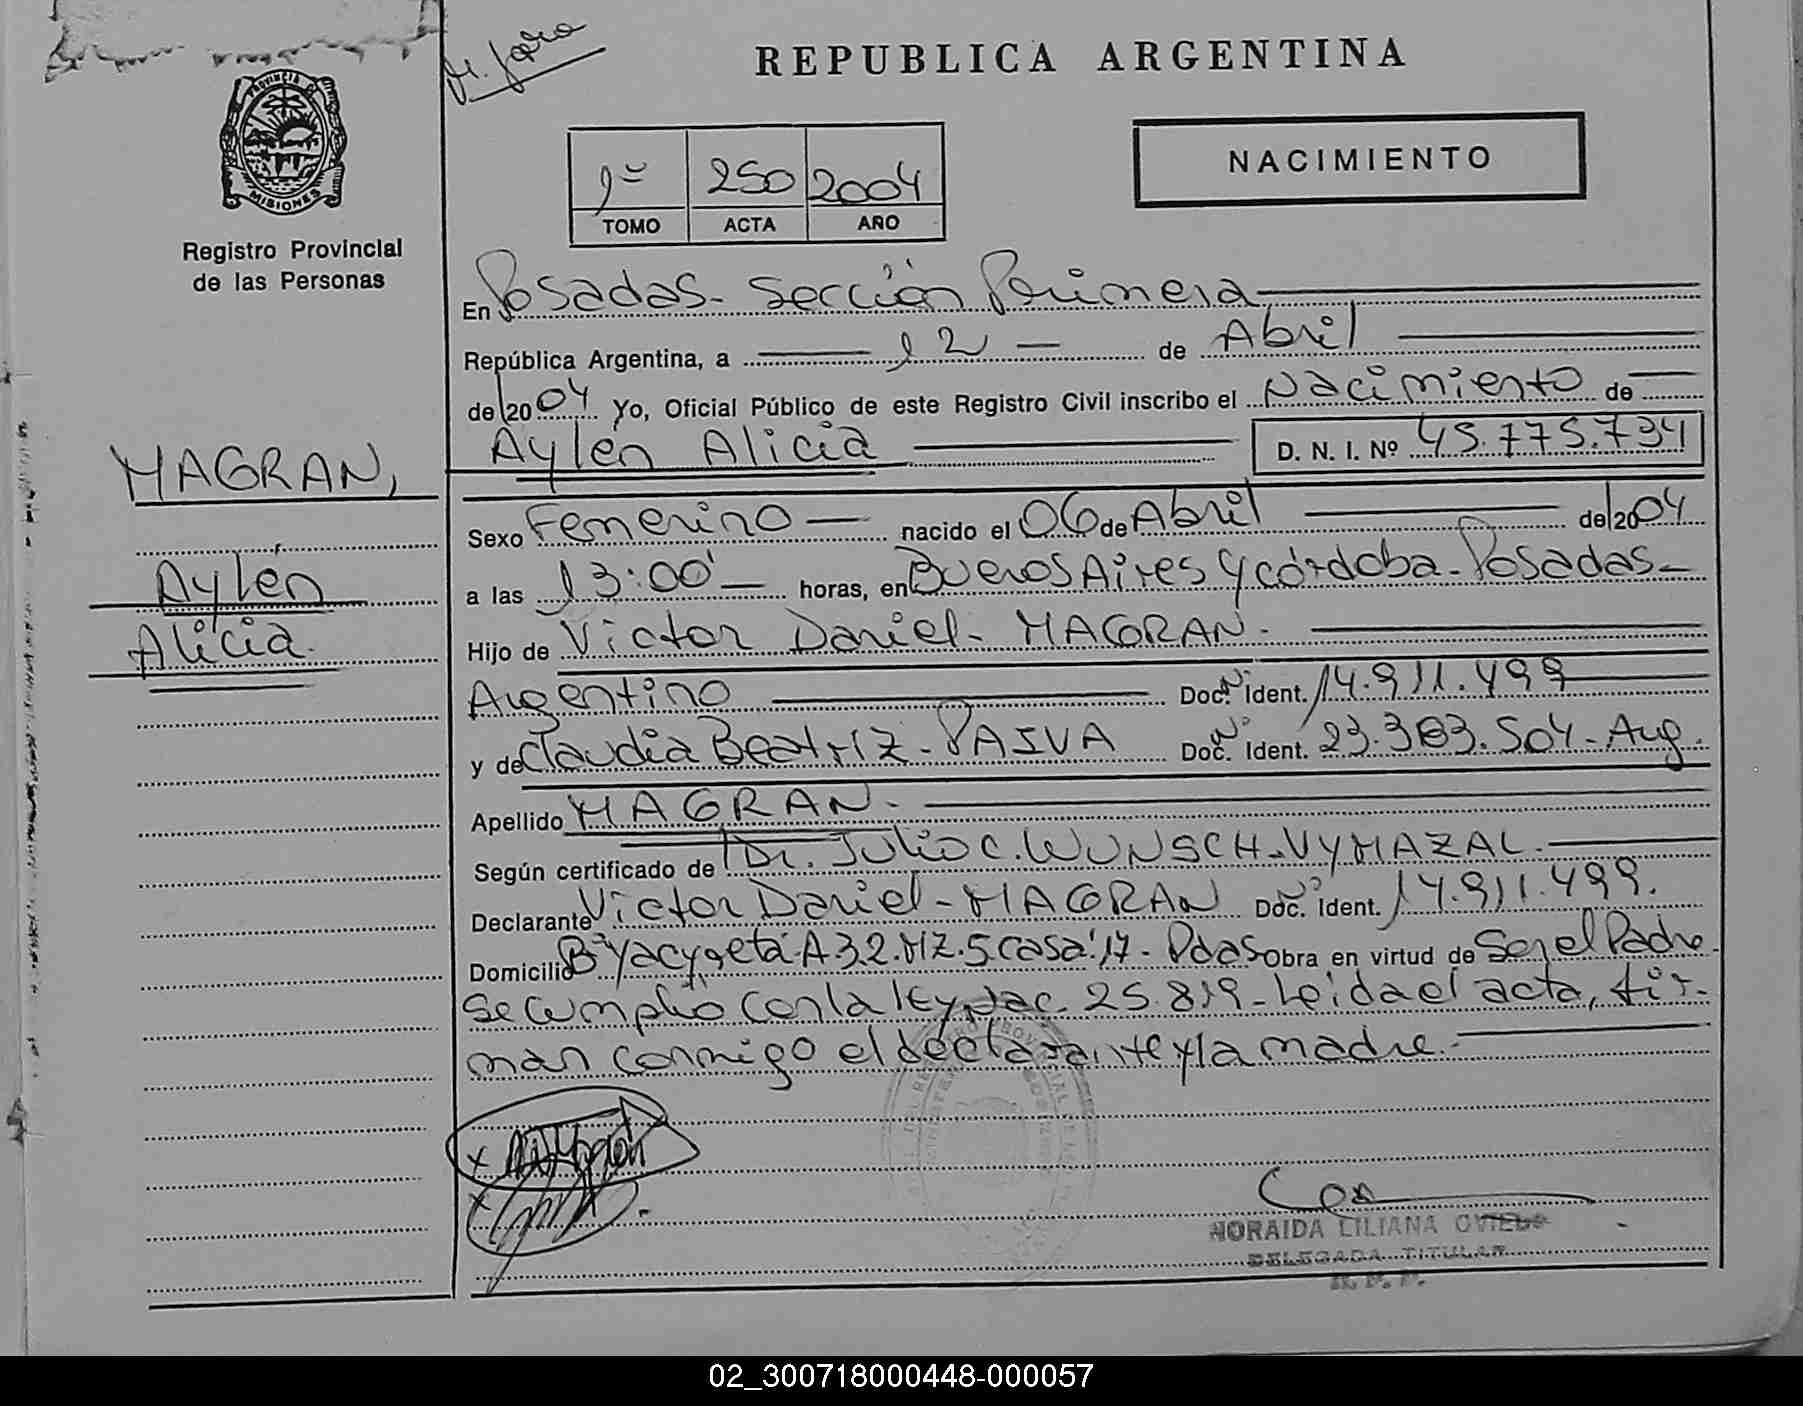 REPUBLICA ARGENTINA
PROVINCIA DE
MISIONES
Registro Provincial
de las Personas
1º 250 2004
TOMO ACTA AÑO
NACIMIENTO
En Posadas - Sección Primera
República Argentina, a 12 de Abril
de 2004 Yo, Oficial Público de este Registro Civil inscribo el Nacimiento de
Aylén Alicia D. N. I. Nº 45.775.734
MAGRAN,
Aylén
Alicia.
Sexo Femenino nacido el 06 de Abril de 2004
a las 13:00' horas, en Buenos Aires y córdoba - Posadas -
Hijo de Victor Daniel - MAGRAN -
Argentino Doc. Nº Ident. 14.911.499
y de Claudia Beatriz - PAIVA Doc. Nº Ident. 23.383.504 - Arg.
Apellido MAGRAN -
Según certificado de Dr. Julio C. WUNSCH - VYMAZAL -
Declarante Victor Daniel - MAGRAN Doc. Nº Ident. 14.911.499.
Domicilio Bº Yacyretá - A 3.2. MZ. 5 casa: 17 - Pdas Obra en virtud de Ser el Padre -
se cumplió con la ley nac. 25.819 - Leída el acta, fir-
man conmigo el declarante y la madre. -
NORAIDA LILIANA OVIEDO
DELEGADA TITULAR
R. P. P.
02_300718000448-000057